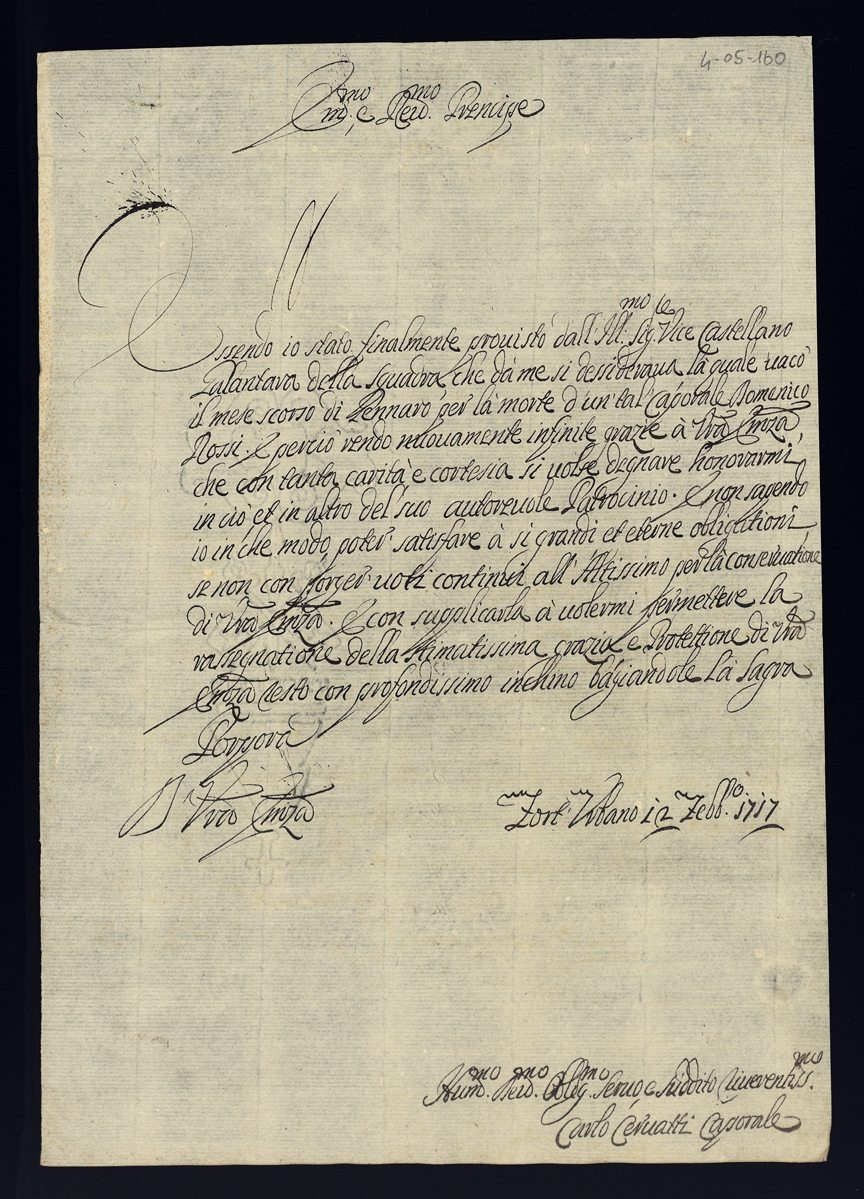 4-05-160
Em.mo e Reu.mo Prencipe
Essendo io stato finalmente prouisto dall' Ill.mo Sig.re Vice Castellano
della Squadra che dà me si dessideraua la quale uacò
il mese scorso di Gennaro per la morte d'un tal Caporale Domenico
Rossi. E perciò rendo nuouamente infinite grazie à Vra Emza
che con tanta carità e cortesia si uolse degnare honorarmi
in ciò et in altro del suo autoreuole Patrocinio. E non sapendo
io in che modo poter satisfare à si grandi et eterne obligationi
se non con porger uoti continui all' Altissimo per la conseruatione
di Vra Emza. E con supplicarla à uolermi permettere la
rassegnatione della stimatissima grazia e Protettione di Vra
Emza resto con profondissimo inchino bagiandole La Sagra
Porpora
D Vra Emza
Fort' Urbano 12 Febb.o 1717
Hum.mo Deu.mo Oblig.mo Seruo, e Suddito Riuerentiss.mo
Carlo Ceruatti Caporale